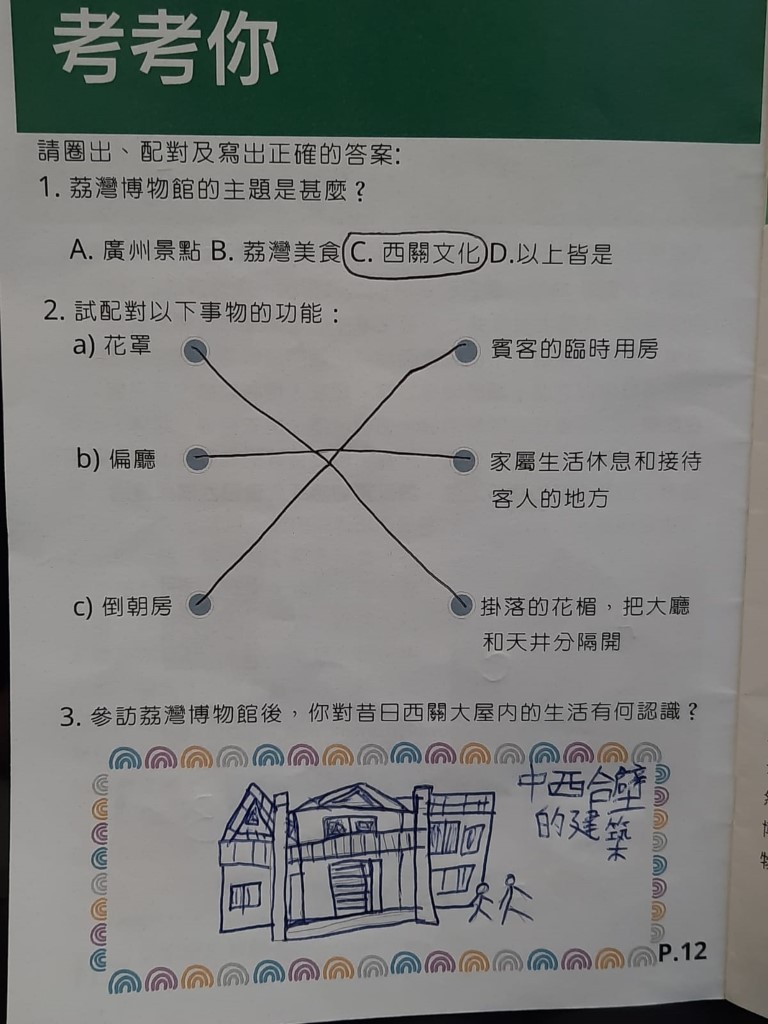 考考你
請圈出、配對及寫出正確的答案:
1. 荔灣博物館的主題是甚麼？
A. 廣州景點 B. 荔灣美食 C. 西關文化 D.以上皆是
2. 試配對以下事物的功能：
a) 花罩
賓客的臨時用房
b) 偏廳
家屬生活休息和接待
客人的地方
c) 倒朝房
掛落的花楣，把大廳
和天井分隔開
3. 參訪荔灣博物館後，你對昔日西關大屋內的生活有何認識？
中西合壁
的建築
P.12